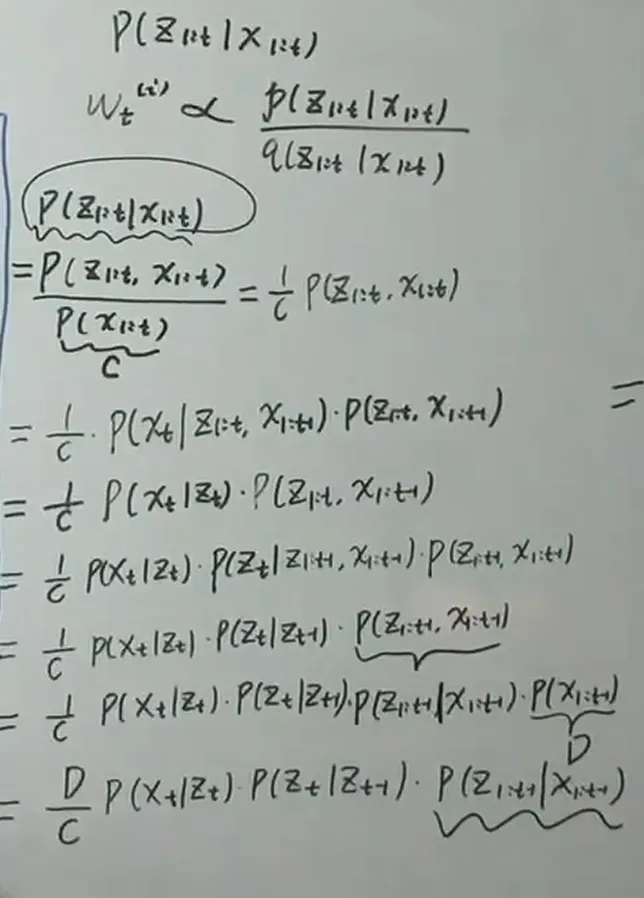 P(Z₁:t | X₁:t)
Wt⁽ⁱ⁾ ∝ P(Z₁:t | X₁:t) / q(Z₁:t | X₁:t)
P(Z₁:t | X₁:t)
= P(Z₁:t, X₁:t) / P(X₁:t) = 1/C P(Z₁:t, X₁:t)
C
= 1/C · P(Xt | Z₁:t, X₁:t-1) · P(Z₁:t, X₁:t-1) =
= 1/C P(Xt | Zt) · P(Z₁:t, X₁:t-1)
= 1/C P(Xt | Zt) · P(Zt | Z₁:t-1, X₁:t-1) · P(Z₁:t-1, X₁:t-1)
= 1/C P(Xt | Zt) · P(Zt | Zt-1) · P(Z₁:t-1, X₁:t-1)
= 1/C P(Xt | Zt) · P(Zt | Zt-1) · P(Z₁:t-1 | X₁:t-1) · P(X₁:t-1)
D
= D/C P(Xt | Zt) · P(Zt | Zt-1) · P(Z₁:t-1 | X₁:t-1)